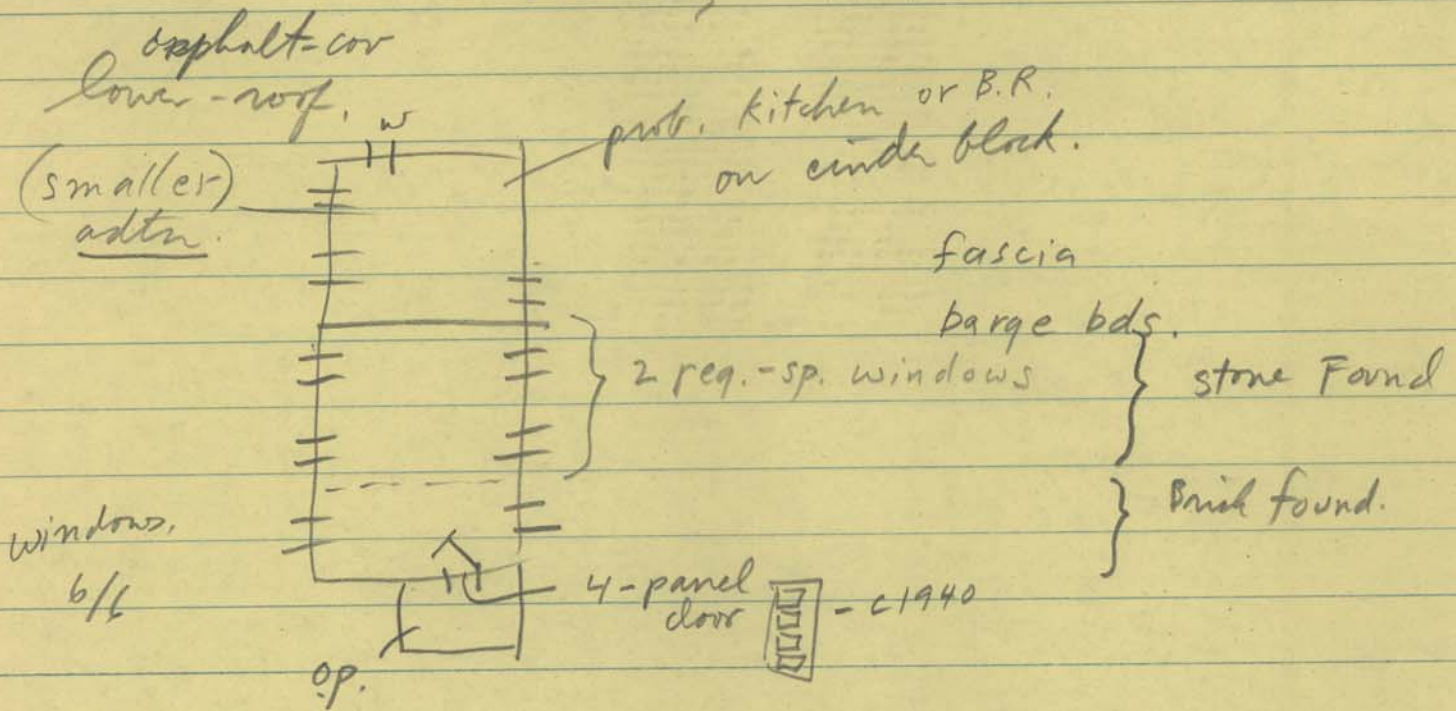 asphalt-cov
lower-roof.
w
prob. kitchen or B.R.
on cinder block.
(smaller)
adtn.
fascia
barge bds.
2 reg.-sp. windows
stone Found
Brick found.
windows.
6/6
4-panel
door
- c1940
o.p.